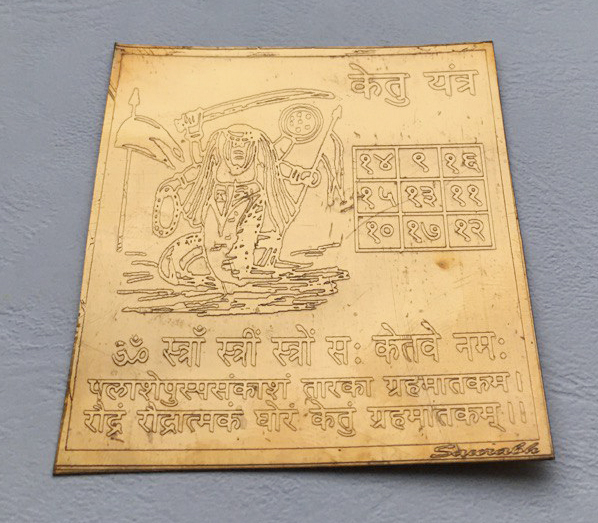 केतु यंत्र
१४ ९ १६
१५ १३ ११
१० १७ १२
ॐ स्त्राँ स्त्रीं स्त्रों सः केतवे नमः
पलाशेपुस्पसंकाशं तारका ग्रहमातकम।
रौद्रं रौद्रात्मकं घोरं केतुं ग्रहमातकम्।।
Saurabh